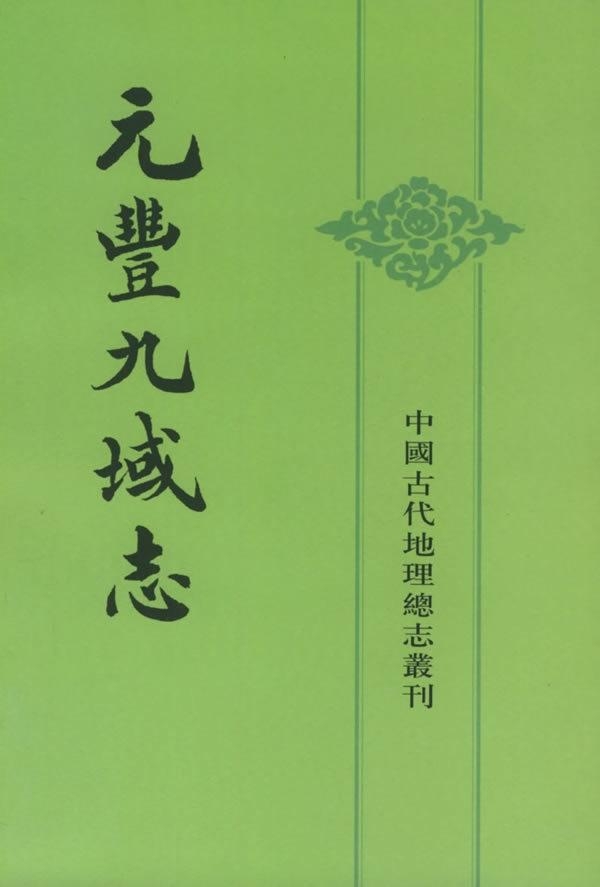 元豐九域志
中國古代地理總志叢刊